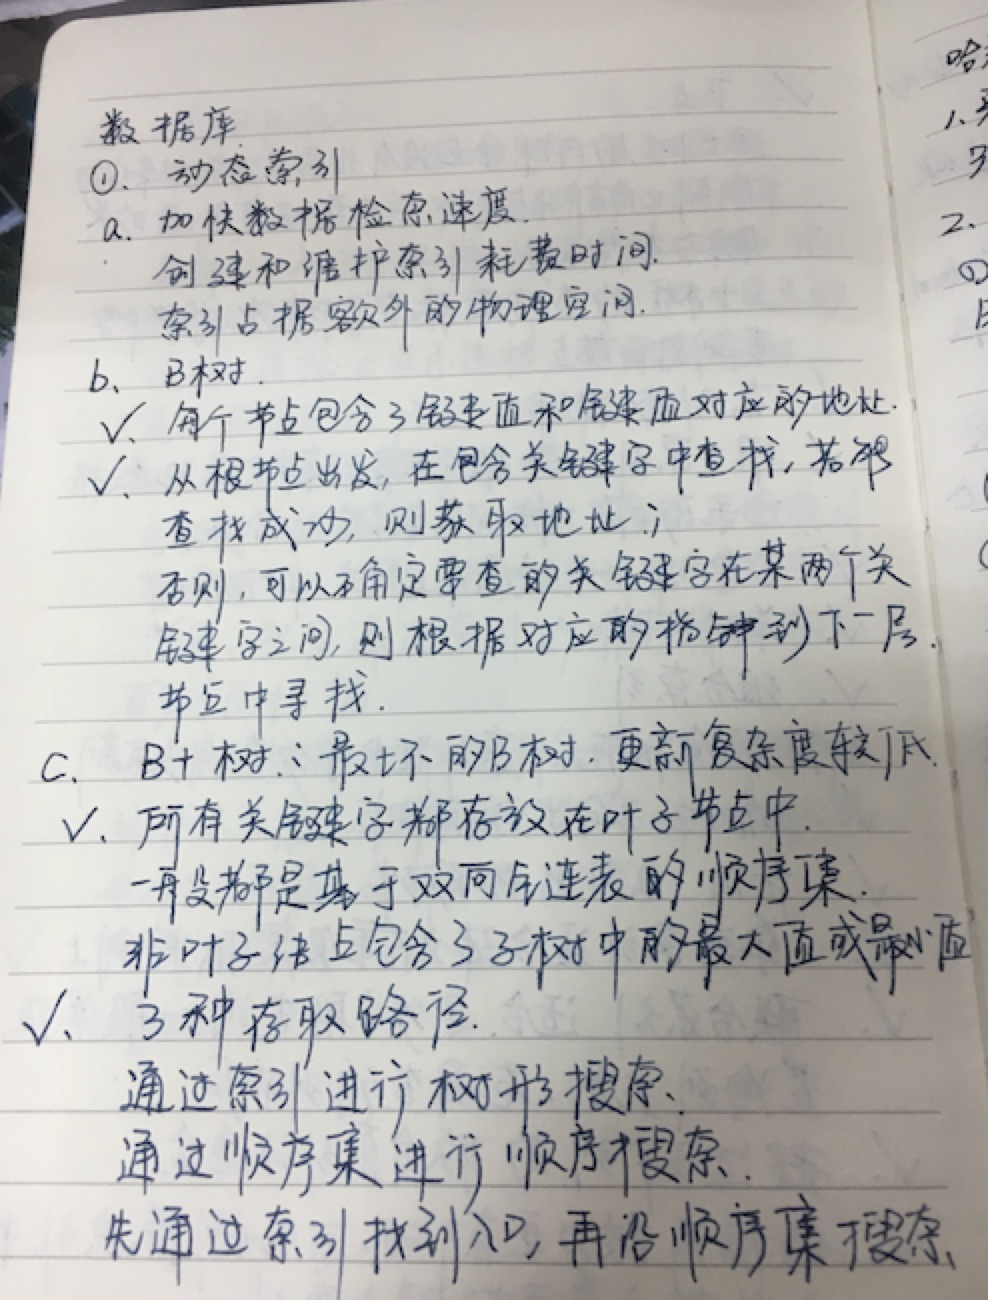 数据库
①. 动态索引
a. 加快数据检索速度.
创建和维护索引耗费时间.
索引占据额外的物理空间.
b、 B树.
√. 每个节点包含了键值和键值对应的地址.
√. 从根节点出发, 在包含关键字中查找, 若
查找成功, 则获取地址;
否则, 可以确定要查的关键字在某两个关
键字之间, 则根据对应的指针到下一层.
节点中寻找.
C. B+树: 最坏的B树. 更新复杂度较低.
√. 所有关键字都存放在叶子节点中.
一般都是基于双向连表的顺序集.
非叶子结点包含了子树中的最大值或最小值
√. 3种存取路径.
通过索引进行树形搜索.
通过顺序集进行顺序搜索.
先通过索引找到入口, 再沿顺序集搜索
哈
1.
2.
①